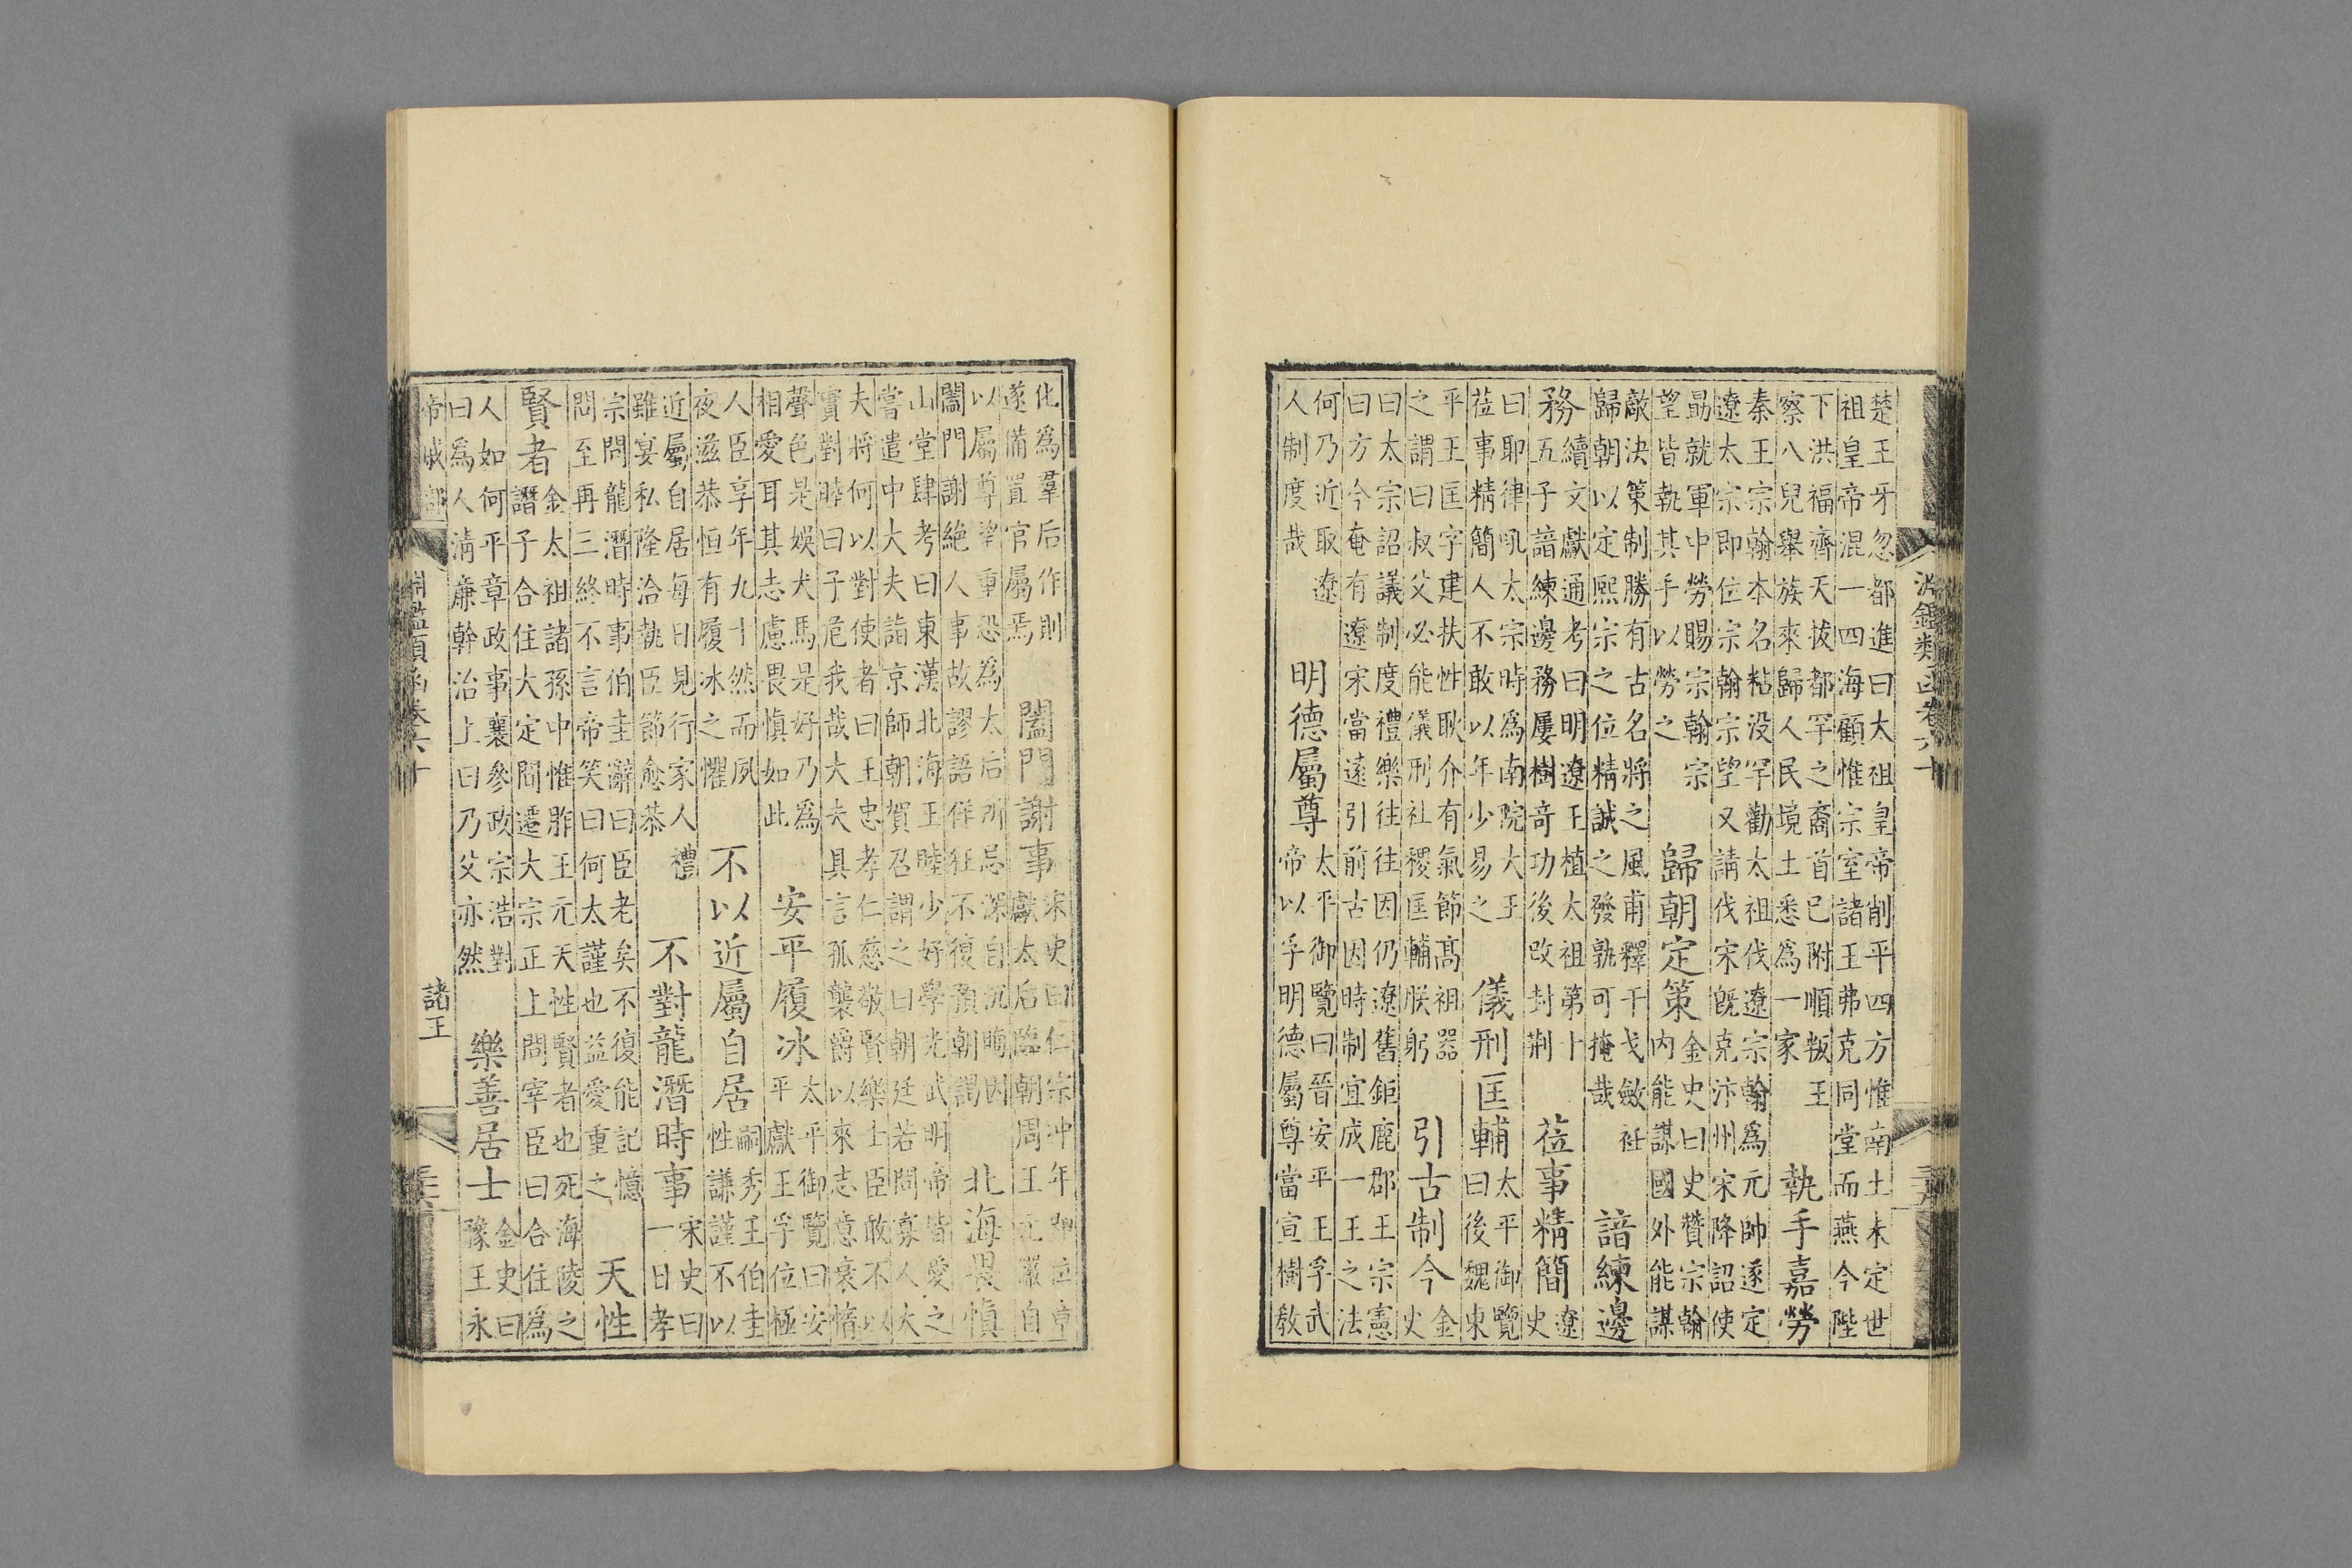 淵鑑類函卷六十
楚王牙忽都進曰太祖皇帝削平四方惟南土未定世
祖皇帝混一四海顧惟宗室諸王弗克同堂而燕今陛
下洪福齊天拔都罕之裔首已附順叛王
察八兒舉族來歸人民境土悉為一家
執手嘉勞
秦王宗翰本名粘没罕勸太祖伐遼宗翰為元帥遂定
遼太宗即位宗翰宗望又請伐宋旣克汴州宋降詔使
勗就軍中勞賜宗翰宗
望皆執其手以勞之
歸朝定策
金史曰史贊宗翰
内能謀國外能謀
敵決策制勝有古名將之風甫釋干戈斂衽
歸朝以定熙宗之位精誠之發孰可掩哉
諳練邊
務
續文獻通考曰明遼王植太祖第十
五子諳練邊務屢樹奇功後改封荆
莅事精簡
遼
史
曰耶律吼太宗時為南院大王
莅事精簡人不敢以年少易之
儀刑匡輔
太平御覽
曰後魏東
平王匡字建扶性耿介有氣節高祖器
之謂曰叔父必能儀刑社稷匡輔朕躬
引古制今
金
史
曰太宗詔議制度禮樂往往因仍遼舊鉅鹿郡王宗憲
曰方今奄有遼宋當遠引前古因時制宜成一王之法
何乃近取遼
人制度哉
明德屬尊
太平御覽曰晉安平王孚武
帝以孚明德屬尊當宣樹教
化為羣后作則
遂備置官屬焉
闔門謝事
宋史曰仁宗冲年卽位章
獻太后臨朝周王元儼自
以屬尊望重恐為太后所忌深自沉晦因
闔門謝絶人事故謬語佯狂不復預朝謁
北海畏慎
山堂肆考曰東漢北海王睦少好學光武明帝皆愛之
嘗遣中大夫詣京師朝賀召謂之曰朝廷若問寡人大
夫將何以對使者曰王忠孝仁慈敬賢樂士臣敢不以
實對睦曰子危我哉大夫具言孤襲爵以來志意衰惰
聲色是娛犬馬是好乃為
相愛耳其志慮畏慎如此
安平履冰
太平御覽曰安
平獻王孚位極
人臣享年九十然而夙
夜滋恭恒有履冰之懼
不以近屬自居
嗣秀王伯圭
性謙謹不以
近屬自居每日見行家人禮
雖宴私隆洽執臣節愈恭
不對龍潛時事
宋史曰
一日孝
宗問龍潛時事伯圭辭曰臣老矣不復能記憶
問至再三終不言帝笑曰何太謹也益愛重之
天性
賢者
金太祖諸孫中惟胙王元天性賢者也死海陵之
譖子合住大定間遷大宗正上問宰臣曰合住為
人如何平章政事襄參政宗浩對
曰為人清廉幹治上曰乃父亦然
樂善居士
金史曰
豫王永
淵鑑類函卷六十
諸王